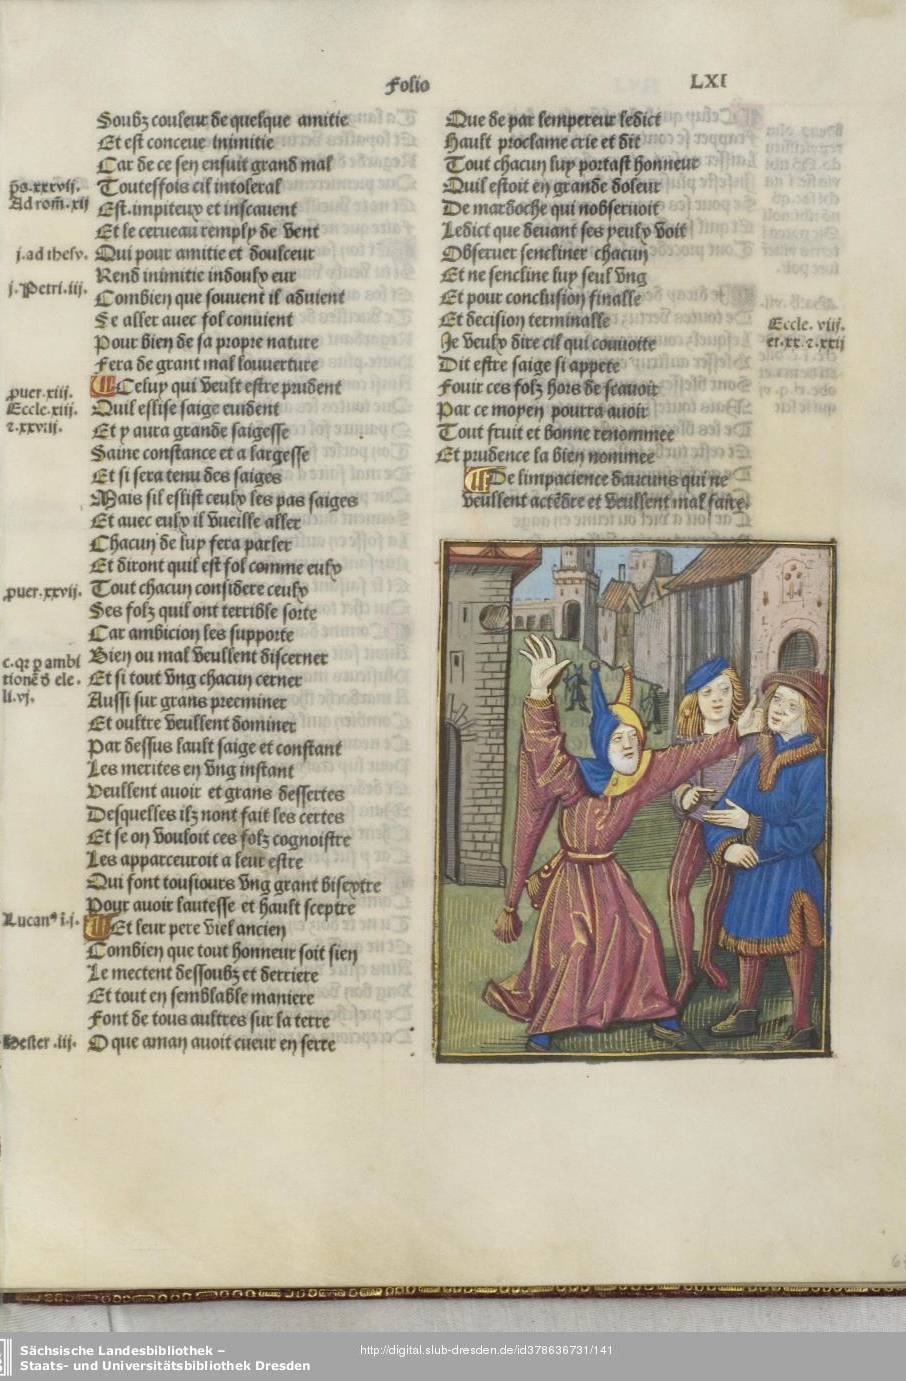 Folio
LXI
Soubz couleur de quelque amitie
Et est conceue inimitie
Car de ce sen ensuit grand mal
ps.xxxvij.
Toutesfois cil intoleral
Ad rom.xij
Est.impiteux et inscauent
Et le cerueau remply de vent
j.ad thesv.
Qui pour amitie et doulceur
Rend inimitie indoulx eur
j.Petri.iij.
Combien que souuent il aduient
Se aller auec fol conuient
Pour bien de sa propre nature
Fera de grant mal louuerture
puer.xiij.
Celuy qui veult estre prudent
Eccle.xiij.
Quil eslise saige euident
Et y aura grande saigesse
Saine constance et a largesse
Et si sera tenu des saiges
Mais sil eslist ceulx les pas saiges
Et auec eulx il vueille aller
Chacun de luy fera parler
Et diront quil est fol comme eulx
puer.xxvij.
Tout chacun considere ceulx
Ses folz quil ont terrible sorte
Car ambicion les supporte
c.qr p ambi
tione d ele.
li.vj.
Bien ou mal veullent discerner
Et si tout vng chacun cerner
Aussi sur grans preeminer
Et oultre veullent dominer
Par dessus lault saige et constant
Les merites en vng instant
Veullent auoir et grans dessertes
Desquelles ilz nont fait les certes
Et se on vouloit ces folz cognoistre
Les apparceuroit a leur estre
Qui font tousiours vng grant disextre
Pour auoir lautesse et hault sceptre
Lucan9 i.j.
Et leur pere viel ancien
Combien que tout honneur soit sien
Le mectent dessoubz et derriere
Et tout en semblable maniere
Font de tous aultres sur la terre
Hester .iij.
O que aman auoit cueur en serre
Que de par lempereur ledict
Hault proclame crie et dit
Tout chacun luy portast honneur
Quil estoit en grande doleur
De mardoche qui nobseruoit
Ledict que deuant ses yeulx voit
Obseruer sencliner chacun
Et ne sencline luy seul vng
Et pour conclusion finalle
Et decision terminalle
Eccle. viij.
et.xx.z.xxij
Je veulx dire cil qui conuoite
Dit estre saige si appete
Fouir ces folz hors de scauoir
Par ce moyen pourra auoir
Tout fruit et bonne renommee
Et prudence la bien nommee
De limpacience daucuns qui ne
veullent actēdre et veullent mal faire.
Sächsische Landesbibliothek –
Staats- und Universitätsbibliothek Dresden
http://digital.slub-dresden.de/id378636731/141